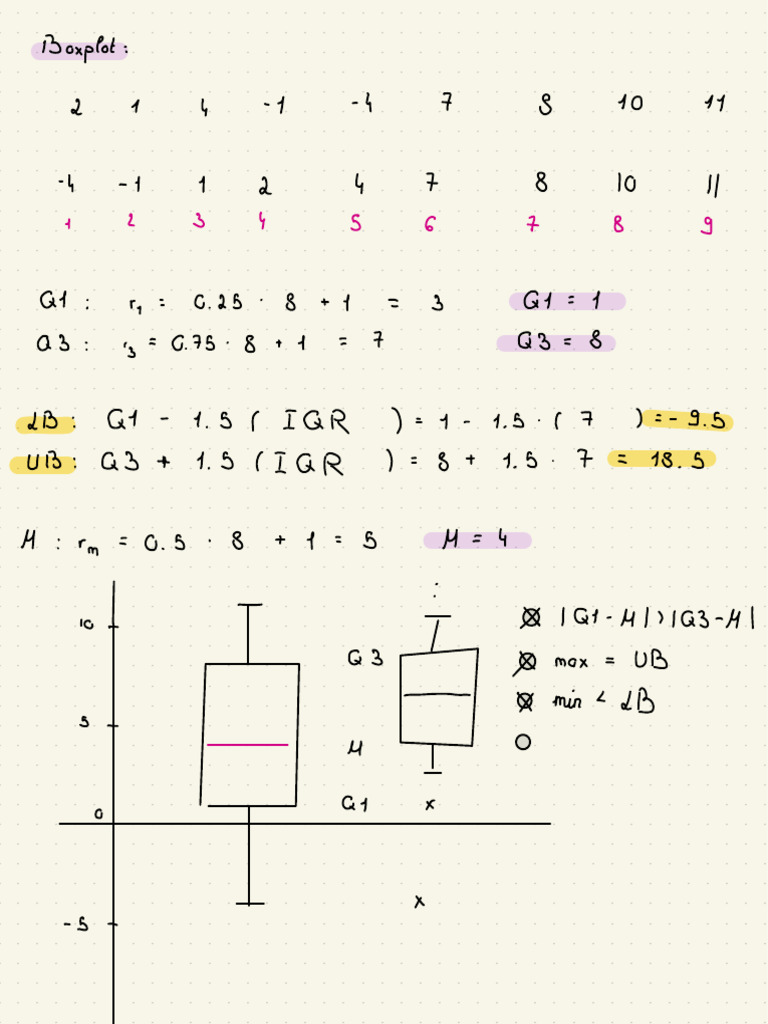 Boxplot:
2 1 4 -1 -4 7 8 10 11
-4 -1 1 2 4 7 8 10 11
1 2 3 4 5 6 7 8 9
Q1: r₁ = 0.25 · 8 + 1 = 3 Q1 = 1
Q3: r₃ = 0.75 · 8 + 1 = 7 Q3 = 8
LB: Q1 - 1.5 (IQR) = 1 - 1.5 · (7) = -9.5
UB: Q3 + 1.5 (IQR) = 8 + 1.5 · 7 = 18.5
M: rₘ = 0.5 · 8 + 1 = 5 M = 4
10
|Q1-M|>|Q3-M|
Q3
max = UB
min < LB
5
M
Q1
0
-5